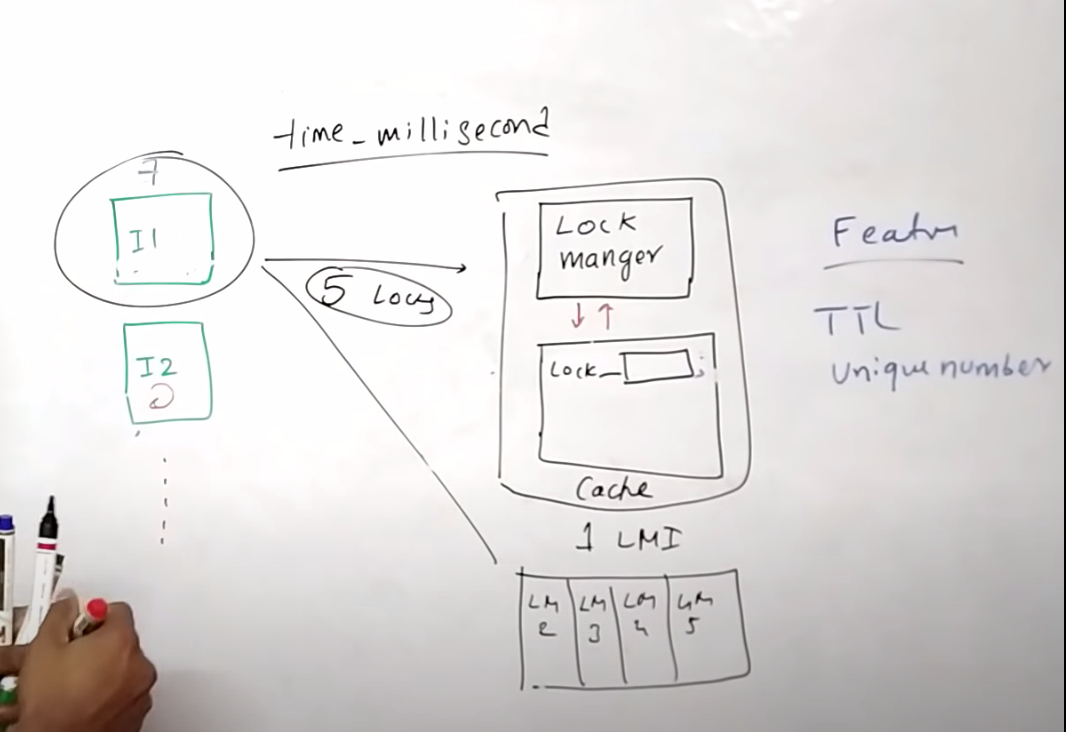 time_millisecond
7
I1
5 Locks
I2
Lock
manger
Lock_
Cache
1 LMI
LM
2
LM
3
LM
4
LM
5
TTL
unique number